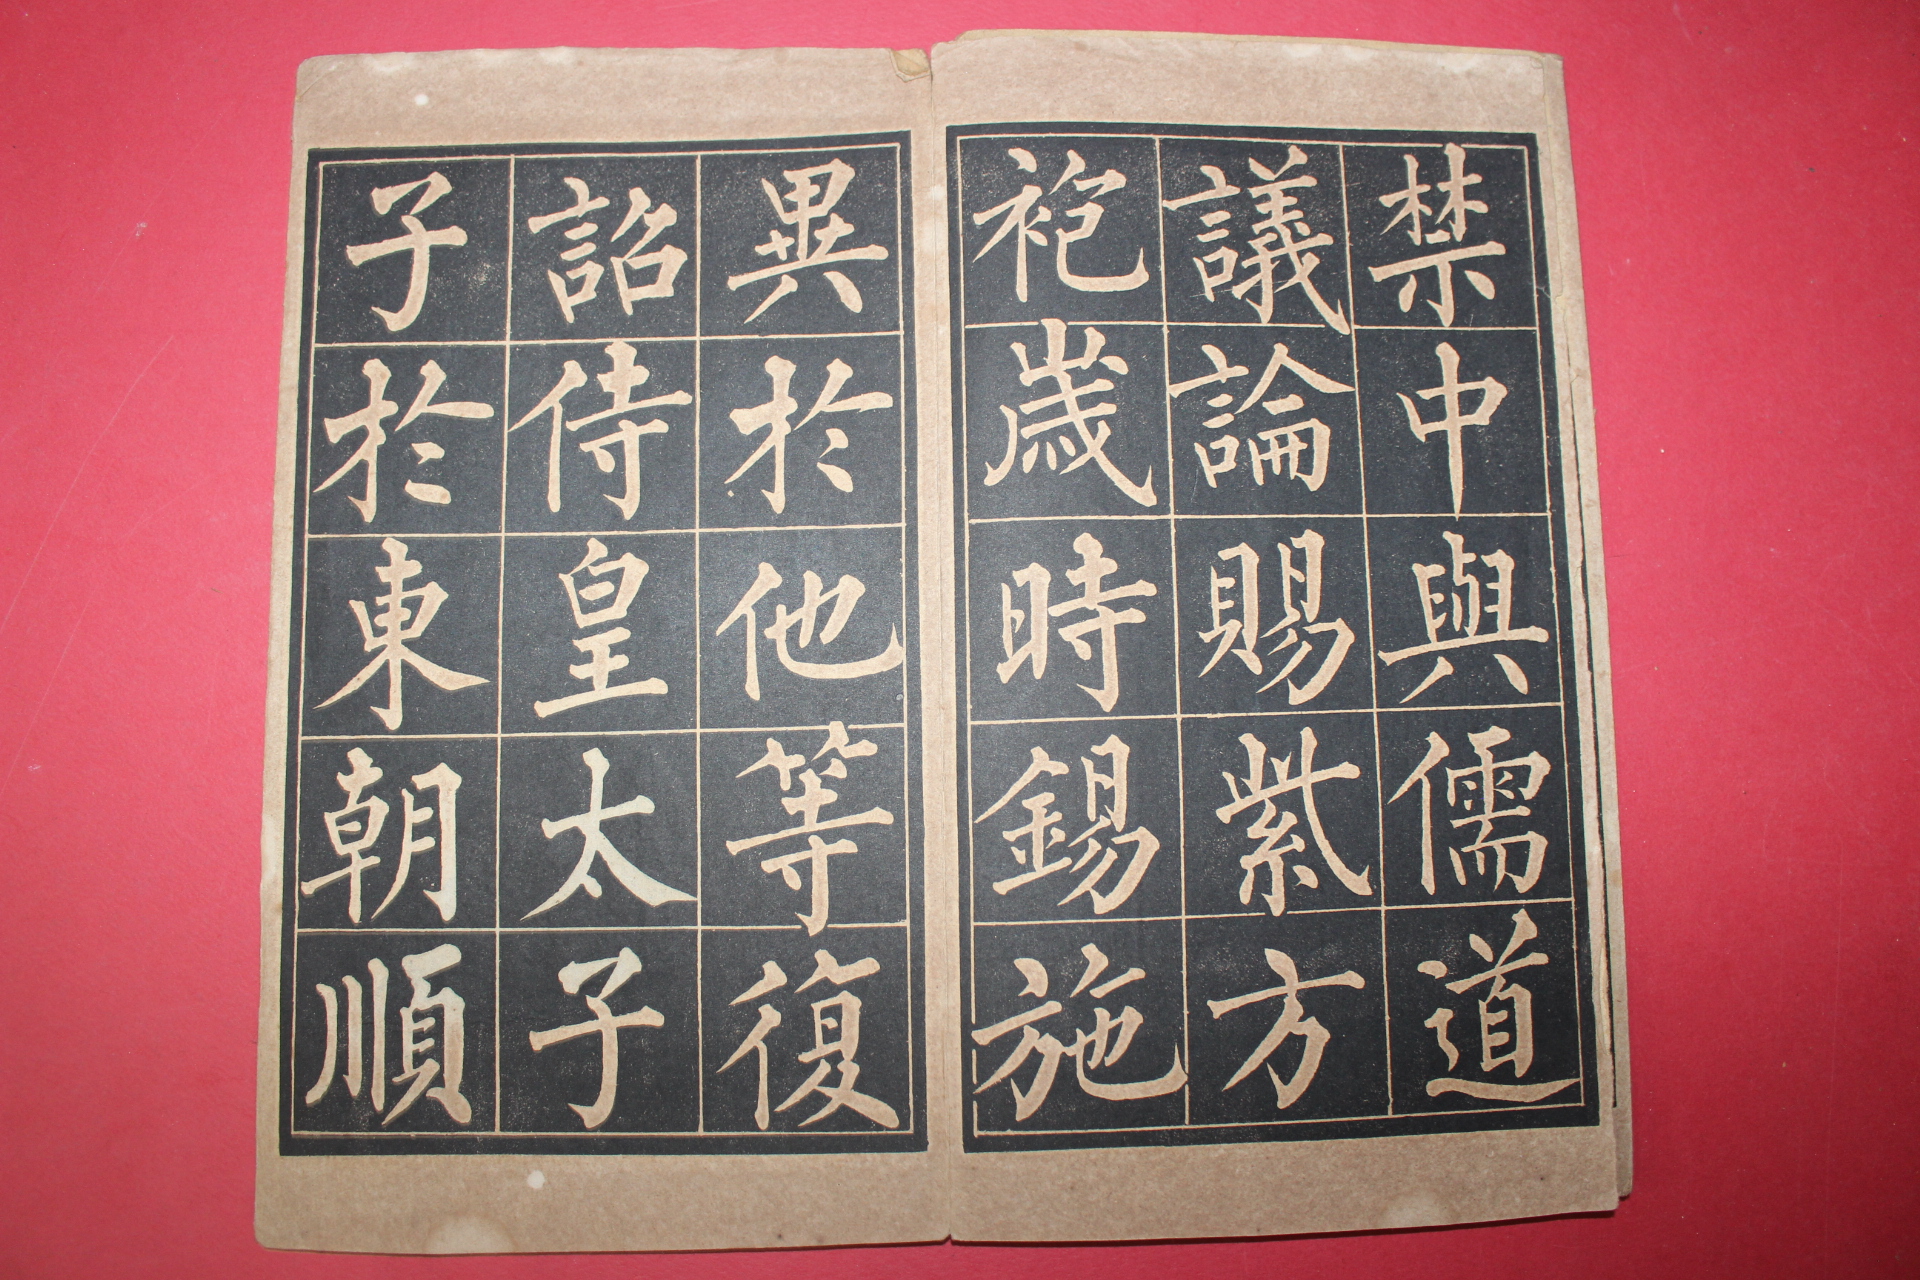 禁中與儒道
議論賜紫方
袍歲時錫施
異於他等復
詔侍皇太子
子於東朝順